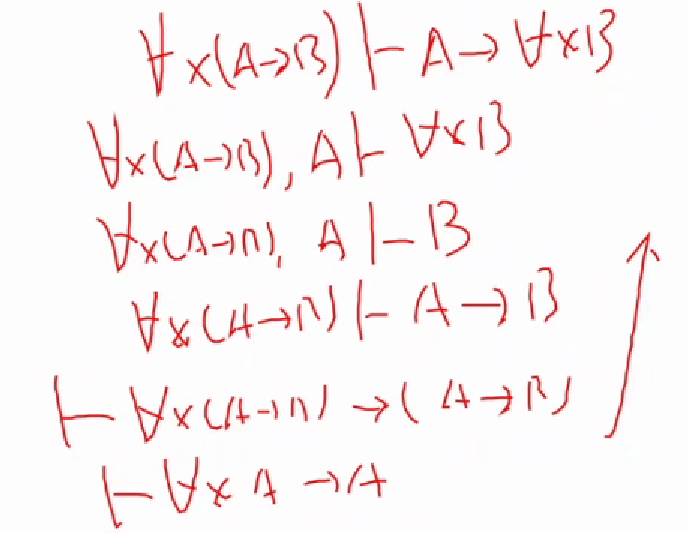 ∀x(A→B) ⊢ A → ∀xB
∀x(A→B), A ⊢ ∀xB
∀x(A→B), A ⊢ B
∀x(A→B) ⊢ A → B
⊢ ∀x(A→B) → (A→B)
⊢ ∀x A → A